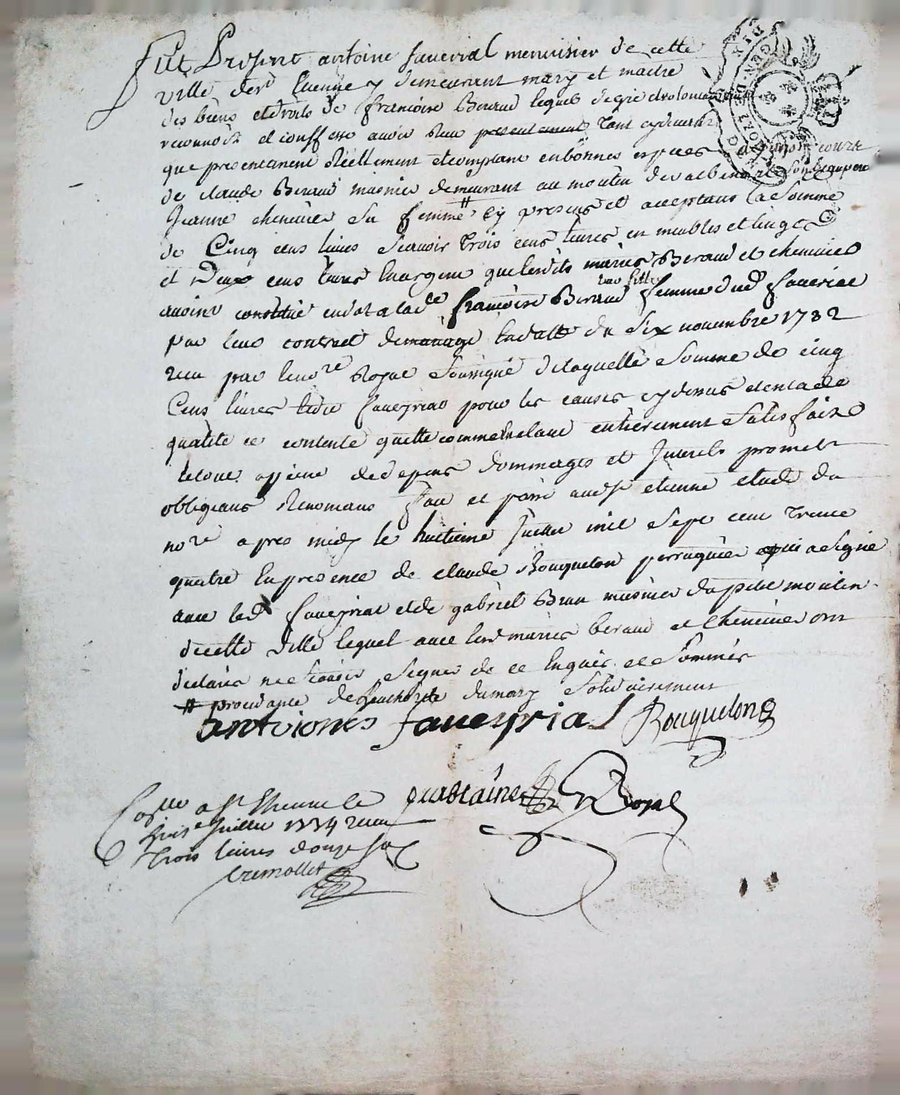 Fut Present antoine faverial menuisier de cette
ville de st Etienne y demeurant mary et maitre
des biens et droits de francoise Beraud lequel de gré
reconnoit et confesse avoir Reu presentement tant cydevant
que presentement Réellement et comptant en bonnes espèces
de claude Beraud musnier demeurant au moulin
Jeanne cheneviere sa femme # cy presens et acceptans la somme
de Cinq cens livres scavoir trois cens livres en meubles et linges
et Deux cens livres en argent que lesdits mariés Beraud et cheneviere
avoint constitué en dot a lade francoise Beraud leur fille femme dud faverial
par leur contrat de mariage en datte du six novembre 1732
receu par le nore Royal soussigné de laquelle somme de cinq
Cens livres ledit faveyrial pour les causes cy dessus et en lade
qualité ce contente quitte comme étant entierement satisfait
le tout a peine de depens dommages et Interets promet
obligeans Renonceans fait et passé aud st etienne etude du
nore apres midy le huitieme Juillet mil sept cent trente
quatre En presence de claude Bouquelon perruquier qui a signé
avec led faveyrial et de gabriel Brun musnier du petit moulin
de cette ville lequel avec lesd mariés beraud et cheneviere ont
declarés ne scavoir signer de ce Enquis et sommés
# procedante de l'authorité du mary solidairement
antoiones faveyrial Bouquelon
Collé a st Etienne le
Juillet 1734 receu
Trois livres douze sols